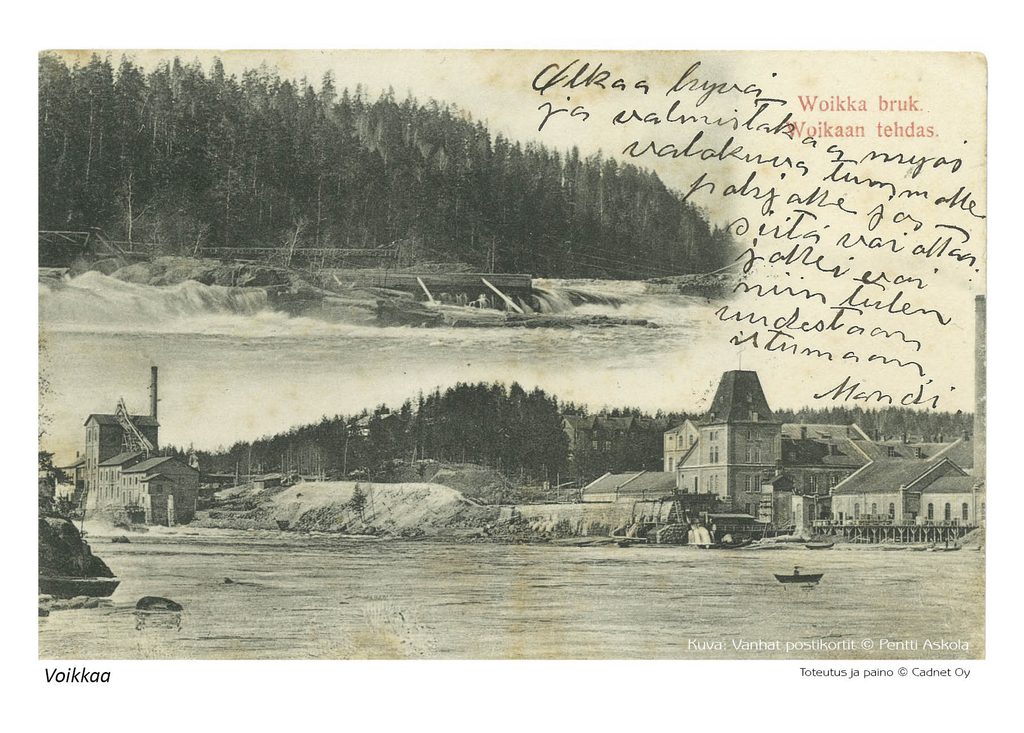 Olkaa hyvä
ja valmistakaa myös
valokuva tummalle
pohjalle ja
seitä vai ottan.
jollei eroi
niin tulen
uudestaan
istumaan,
Mandi
Woikka bruk.
Woikaan tehdas.
Kuva: Vanhat postikortit © Pentti Askola
Voikkaa
Toteutus ja paino © Cadnet Oy